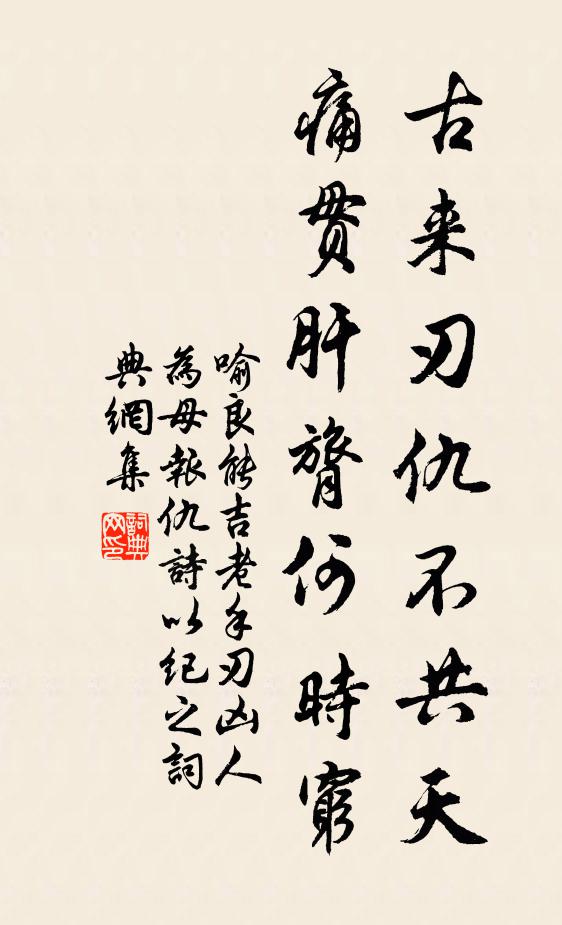 古来刃仇不共天
痛贯肝膂何時窮
喻良能吉老手刃凶人
為母報仇詩以纪之詞
典網集
詞典
网印